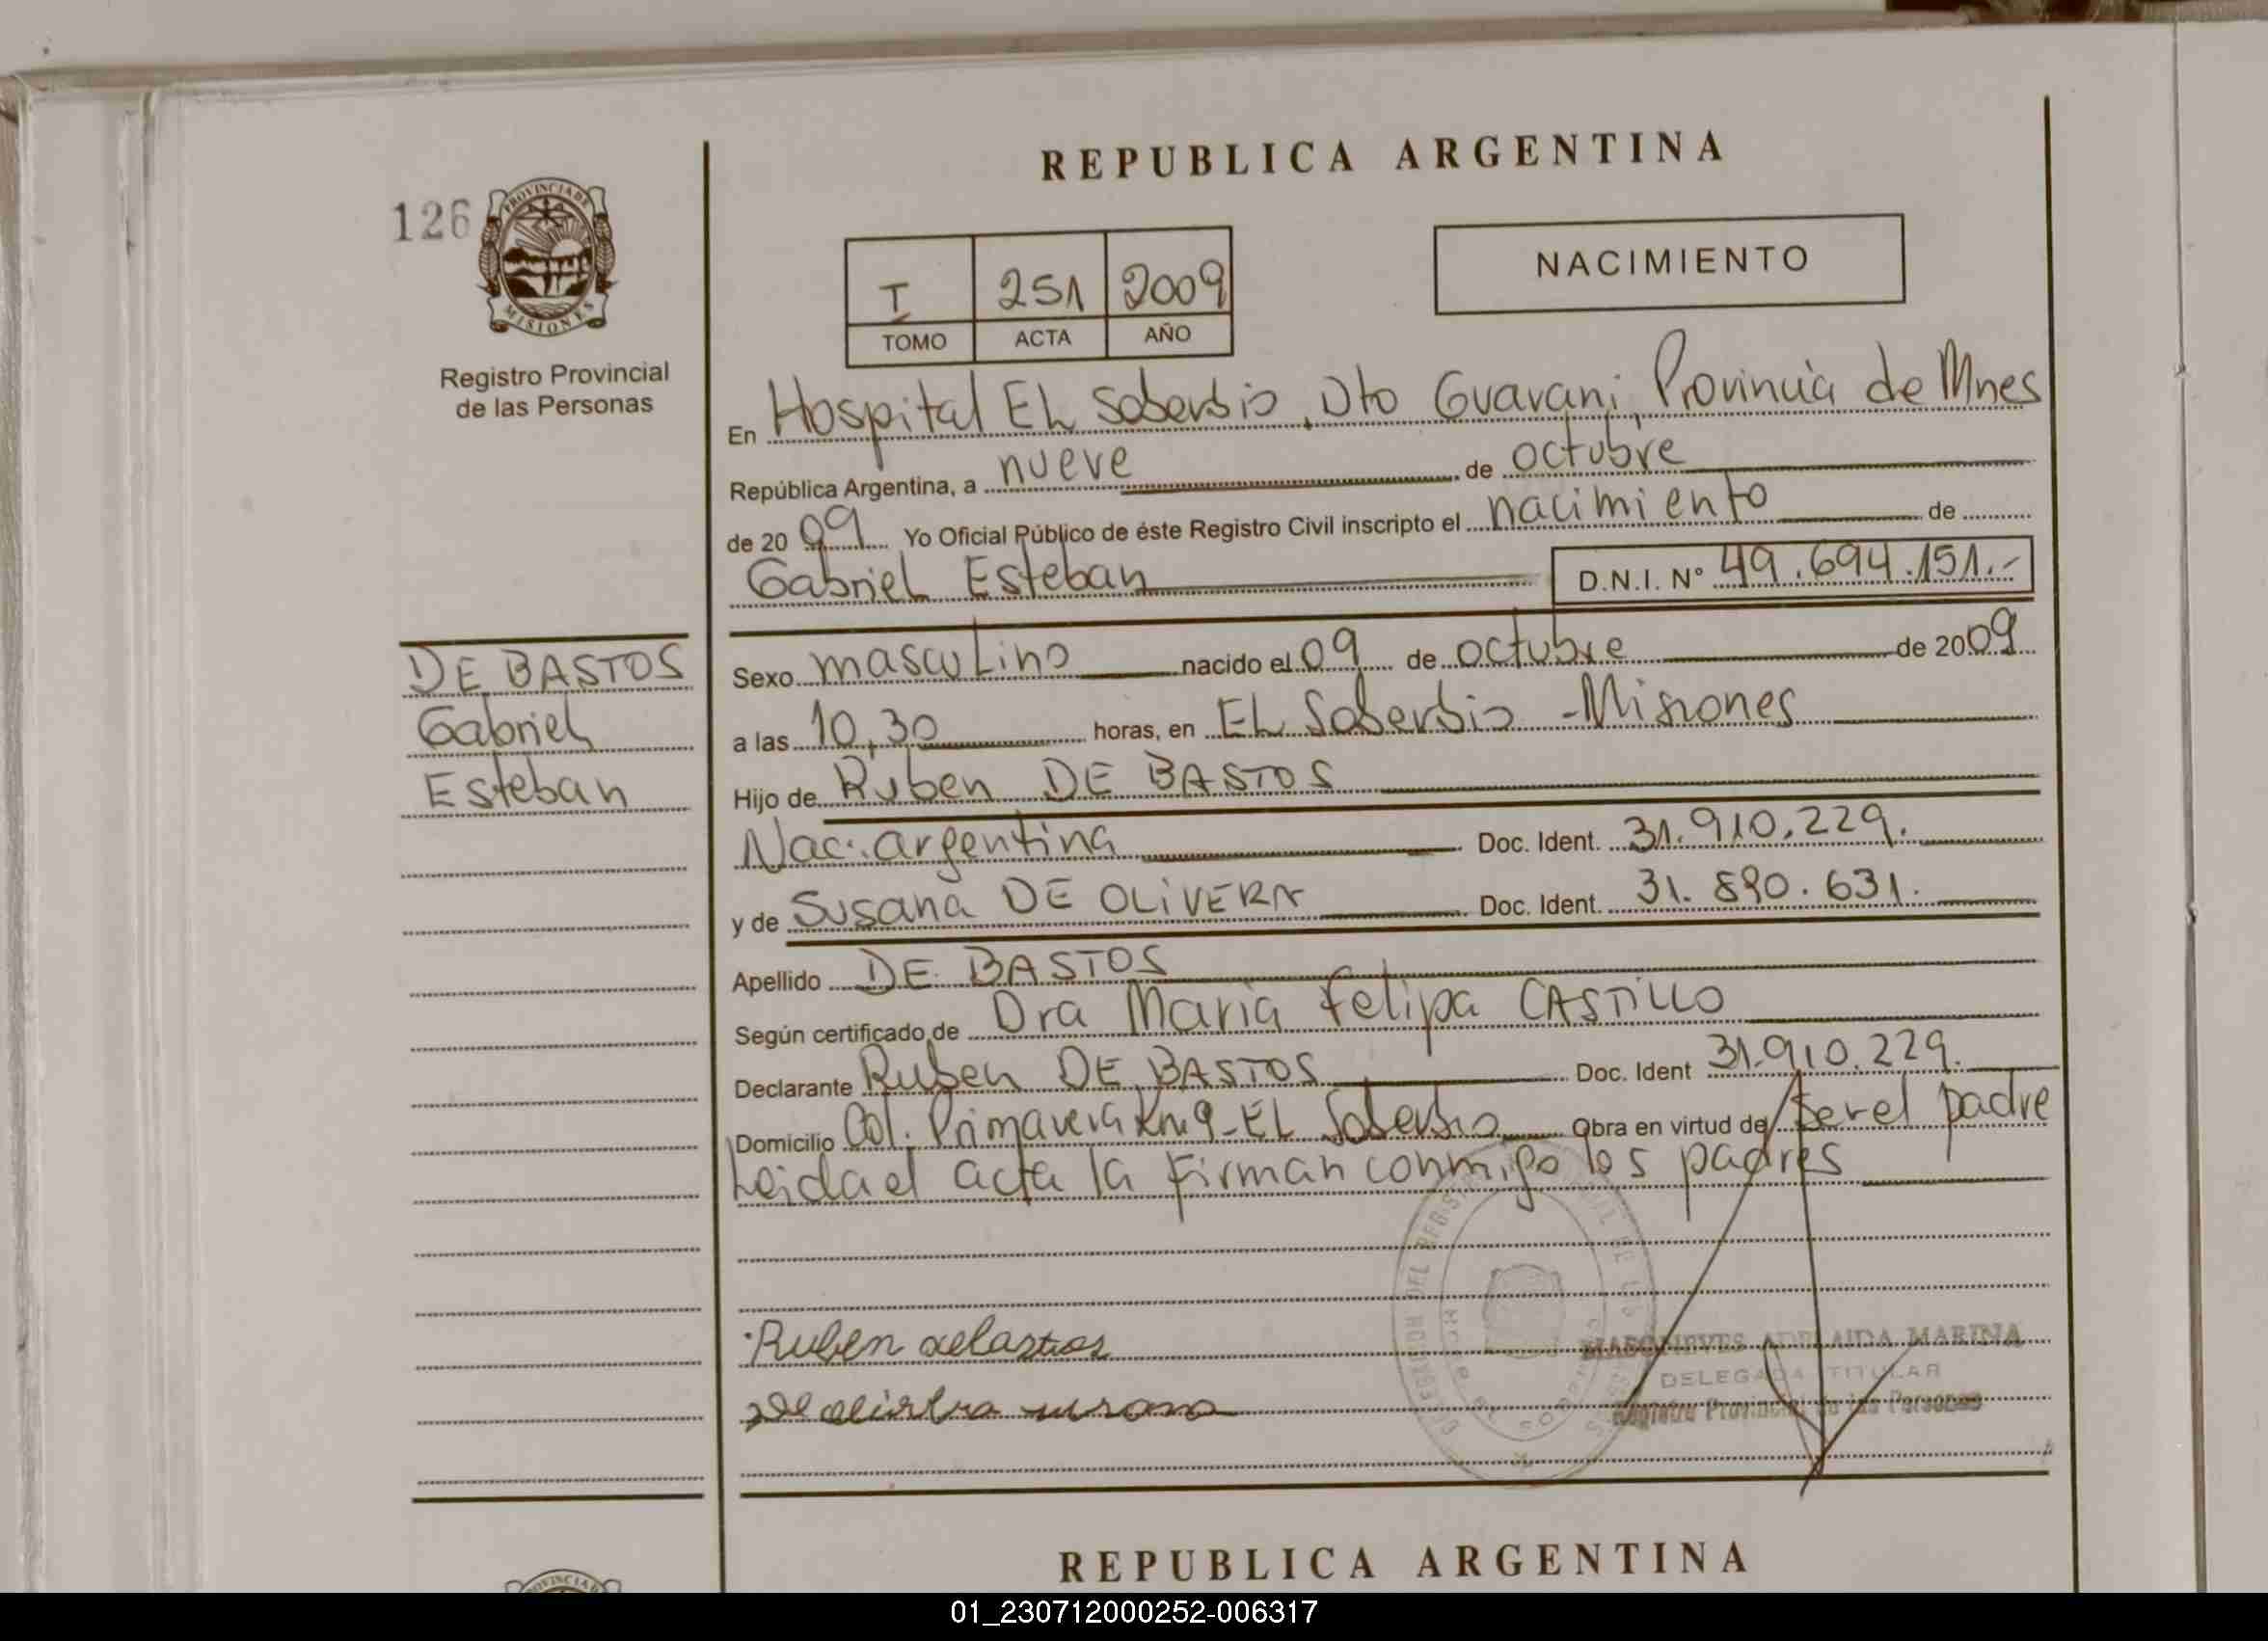 REPUBLICA ARGENTINA
126
PROVINCIA DE
MISIONES
Registro Provincial
de las Personas
I 251 2009
TOMO ACTA AÑO
NACIMIENTO
En Hospital EL Soberbio, Dto Guarani, Provincia de Mnes
República Argentina, a nueve de octubre
de 20 09 Yo Oficial Público de éste Registro Civil inscripto el nacimiento de
Gabriel Esteban D.N.I. N° 49.694.151.-
DE BASTOS
Gabriel
Esteban
Sexo masculino nacido el 09 de octubre de 2009
a las 10,30 horas, en EL Soberbio - Misiones
Hijo de Ruben DE BASTOS
Nac. argentina Doc. Ident. 31.910.229.
y de Susana DE OLIVERA Doc. Ident. 31.890.631.
Apellido DE BASTOS
Según certificado de Dra Maria Felipa CASTILLO
Declarante Ruben DE BASTOS Doc. Ident 31.910.229.
Domicilio Col. Primavera Km 9 - EL Soberbio Obra en virtud de ser el padre
Leida el acta la firman conmigo los padres
Ruben
ADELAIDA MARINA
DELEGADA TITULAR
Registro Provincial de las Personas
REPUBLICA ARGENTINA
01_230712000252-006317